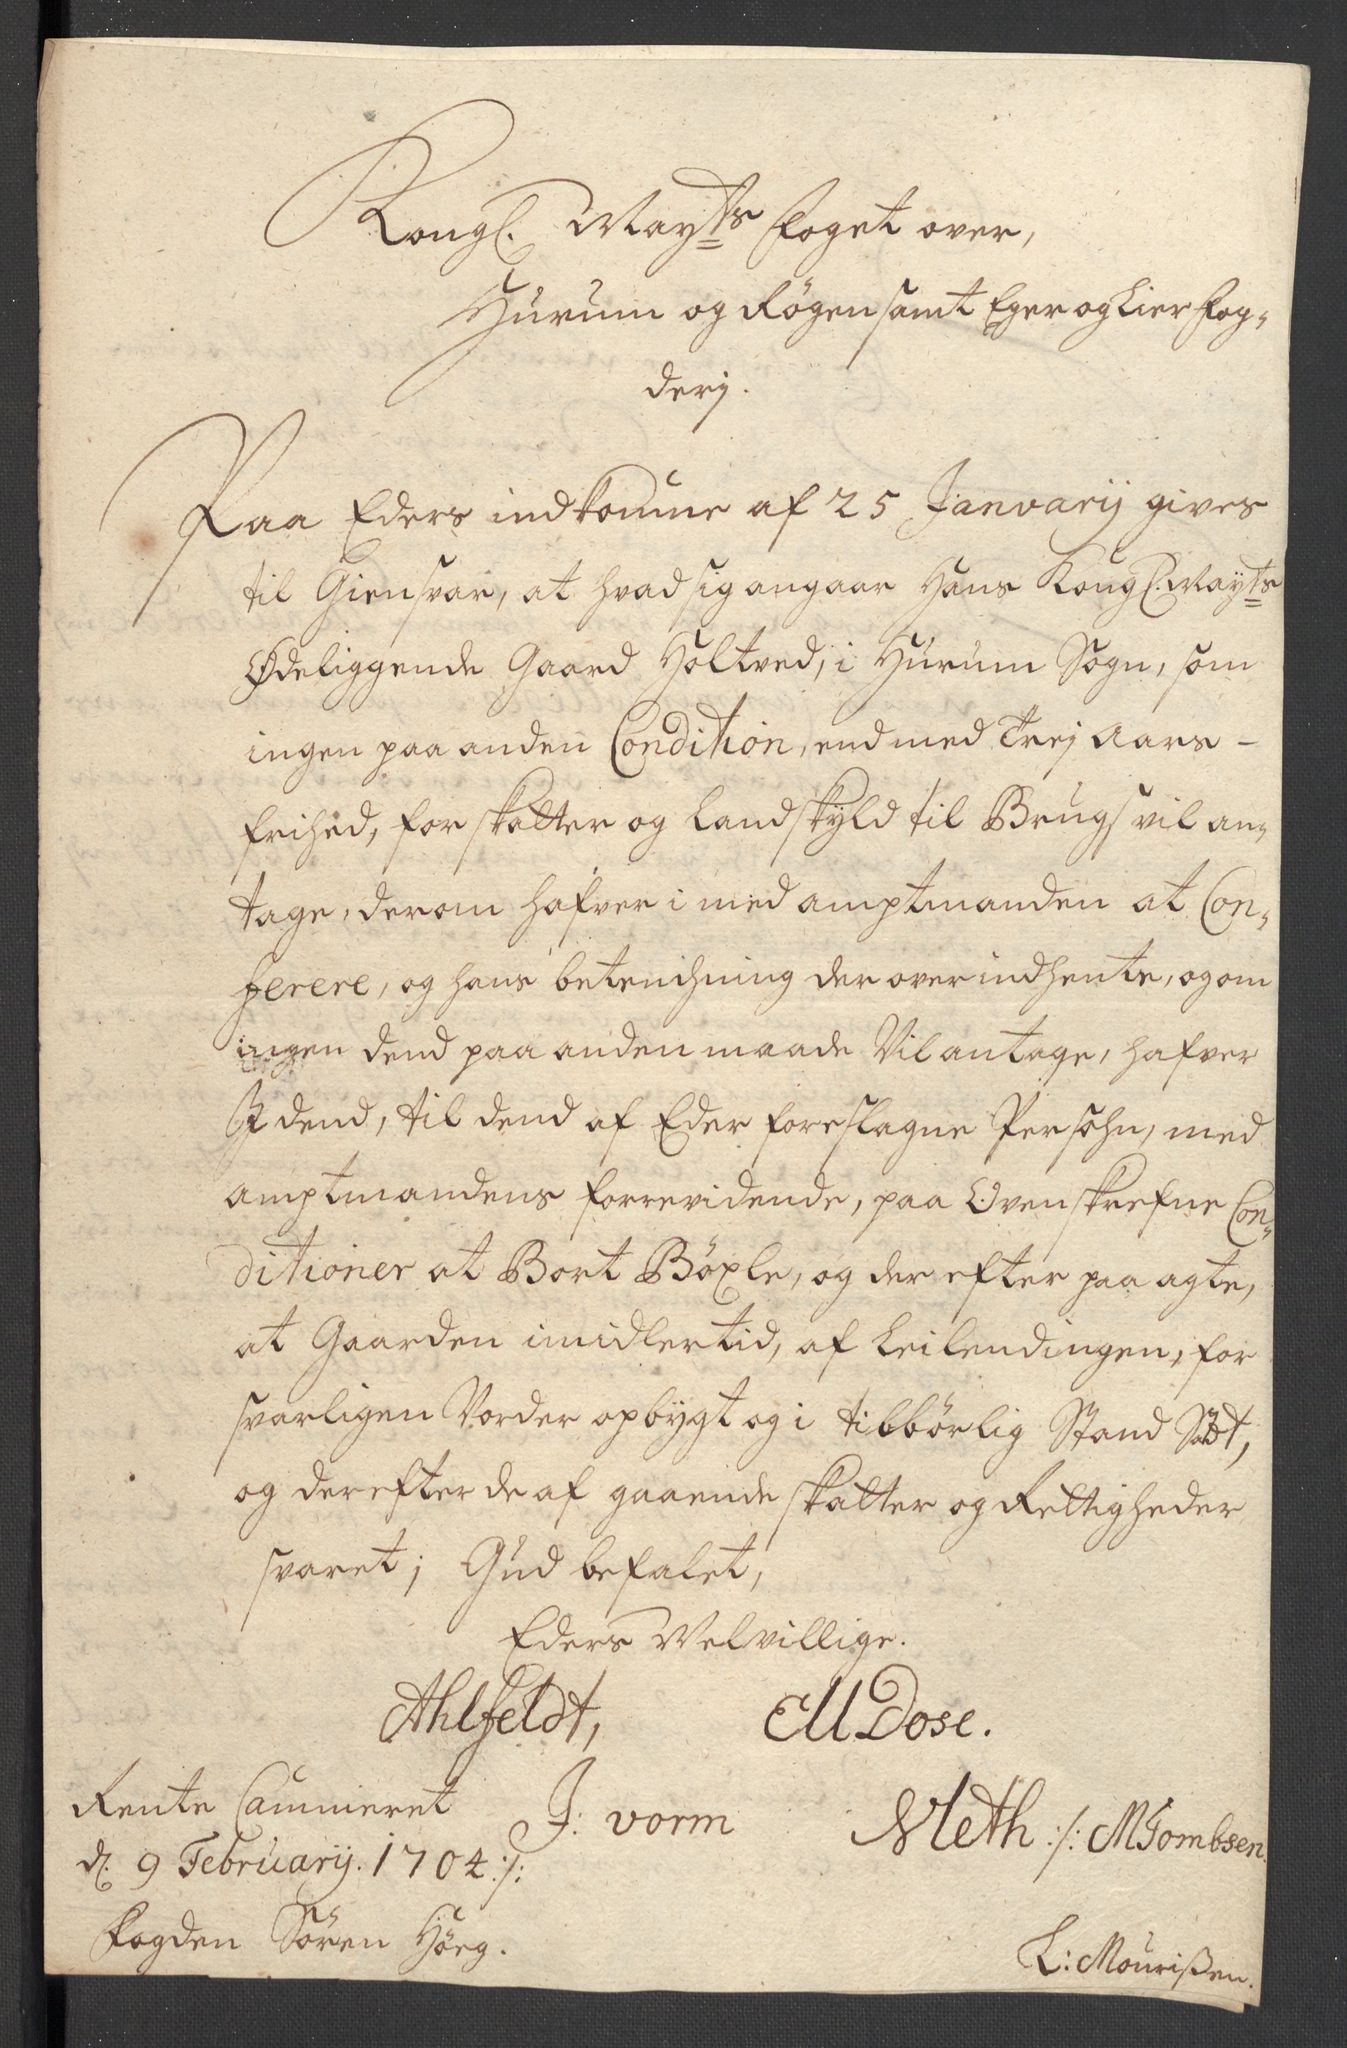 Kongl. Mayts foget over,
Hurum og Røgen samt Eger og Lier fog-
derj.
Paa Eders indkomne af 25 Janvarij gives
til Giensvar, at hvad sig angaar Hans Kongl. Mayts
Ødeliggende Gaard Holtved, i Hurum Sogn, som
ingen paa anden Condition, end med Trej Aars-
frihed, for skatter og Landskyld til Brugs vil an-
tage, derom hafver i med amptmanden at Con-
ferere, og hans betenchning der over indhente, og om
ingen dend paa anden maade Vil antage, hafver
I dend, til dend af Eder foreslagne Persohn, med
amptmandens forrevidende, paa Ovenskrefne Con-
ditioner at Bort Böxle, og der efter paa agte,
at Gaarden imidlertid, af Leilendingen, for
svarligen Vorder opbÿgt og i tilbörlig Stand Sadt,
og derefter de af gaaende skatter og Rettigheder
svaret; Gud befalet,
Eders Velvillige.
Ahlfeldt, CM Dose.
Rente Cammeret J: vorm Meth :/: M Tombsen.
d. 9 Februarij. 1704 :/:
fogden Sören Höeg. L: Mourißen.